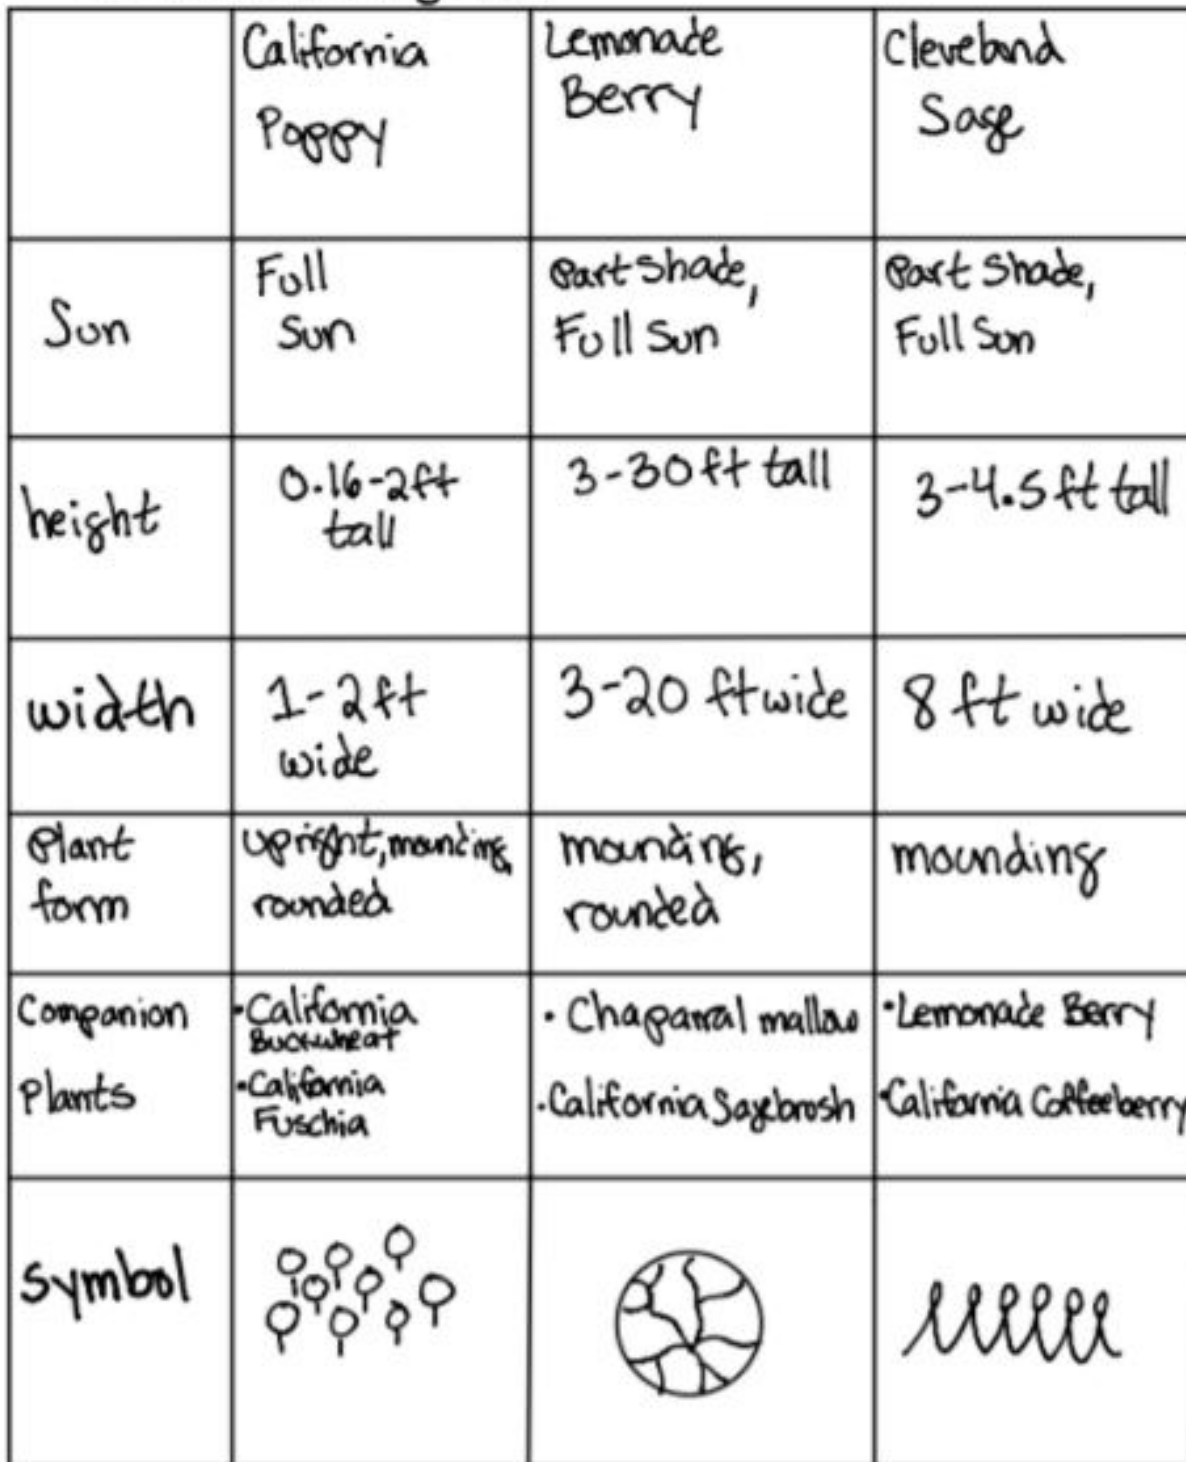 California
Poppy
Lemonade
Berry
Cleveland
Sage
Sun
Full
Sun
Part Shade,
Full Sun
Part Shade,
Full Sun
height
0.16-2ft
tall
3-30 ft tall
3-4.5 ft tall
width
1-2 ft
wide
3-20 ft wide
8 ft wide
Plant
form
upright, mounding,
rounded
mounding,
rounded
mounding
Companion
Plants
•California
Buckwheat
•California
Fuschia
• Chaparral mallow
•California Sagebrush
•Lemonade Berry
•California Coffeeberry
symbol